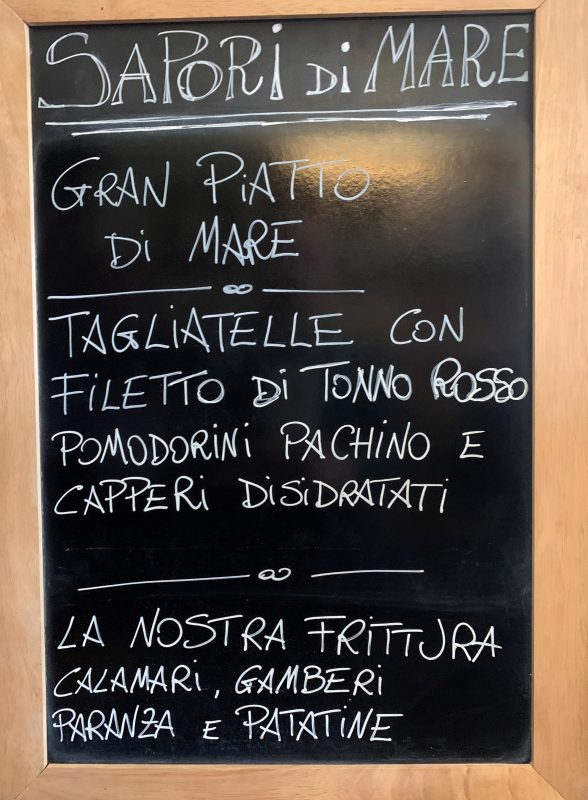 SAPORi Di MARE
GRAN PiATTO
Di MARE
TAGLIATELLE CON
FiLETTO Di TONNO ROSSO
POMODORiNi PACHiNO E
CAPPERi DiSiDRATATi
LA NOSTRA FRiTTURA
CALAMARi, GAMBERi
PARANZA E PATATiNE